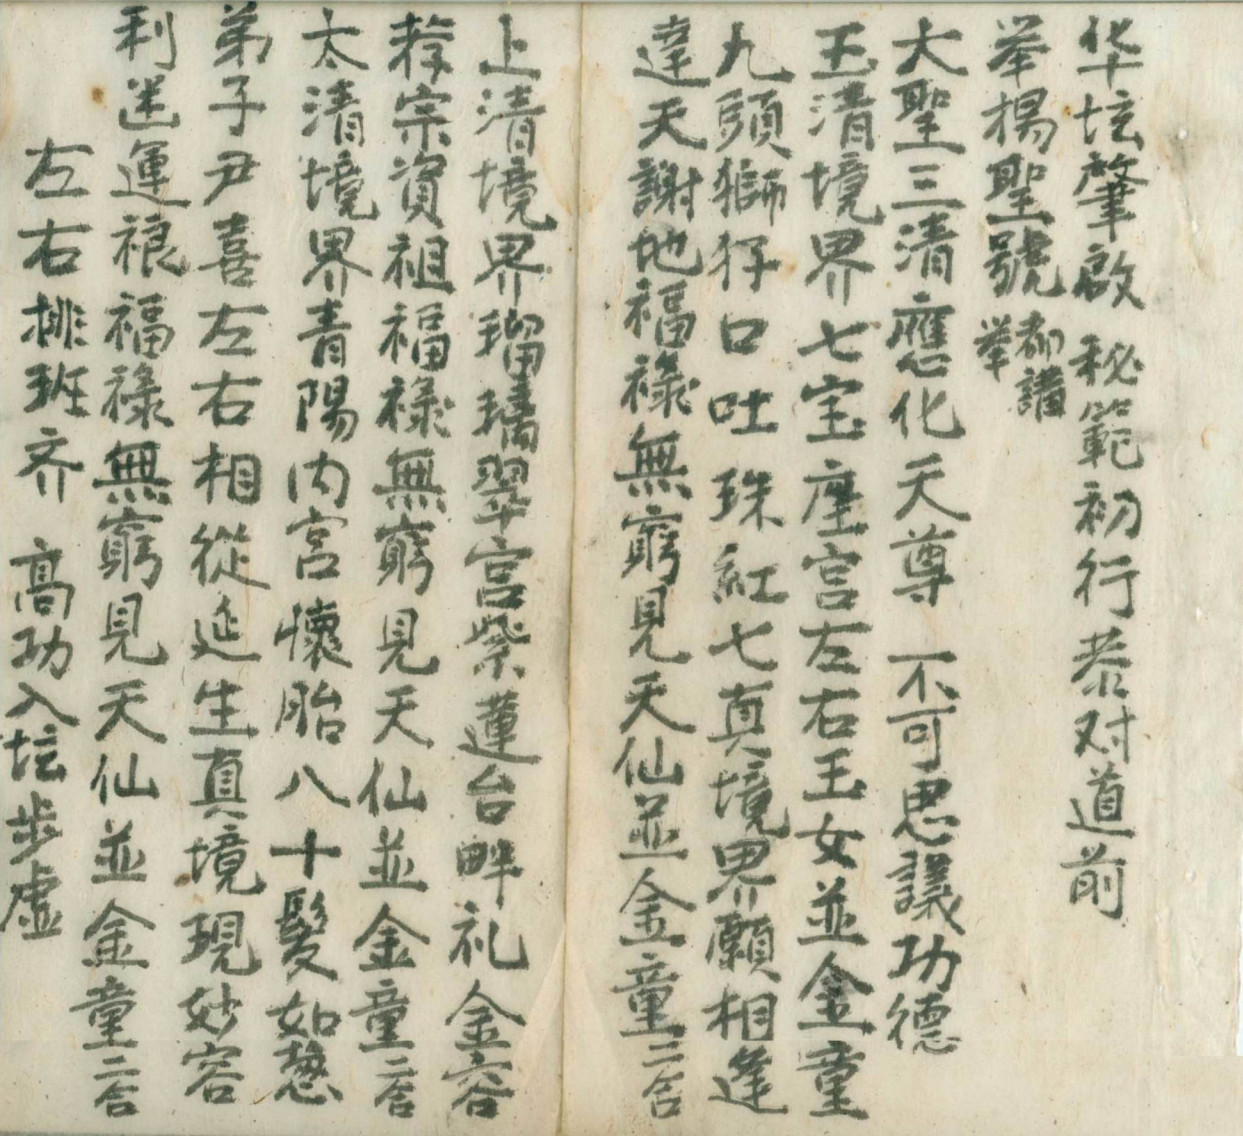 华坛肇啟秘範初行恭对道前
举揚聖號都講舉
大聖三清應化天尊不可思議功德
玉清境界七宝座宫左右玉女並金童
九頭獅犴口吐珠紅七真境界願相逢
達天謝地福祿無窮見天仙並金童二合
上清境界瑠璃翠宫紫蓮台畔礼金容
宗資祖福祿無窮見天仙並金童二合
太清境界青陽内宫懷胎八十髮如葱
弟子尹喜左右相從延生真境現妙容
利运福祿無窮見天仙並金童二合
左右排班齐高功入坛步虚